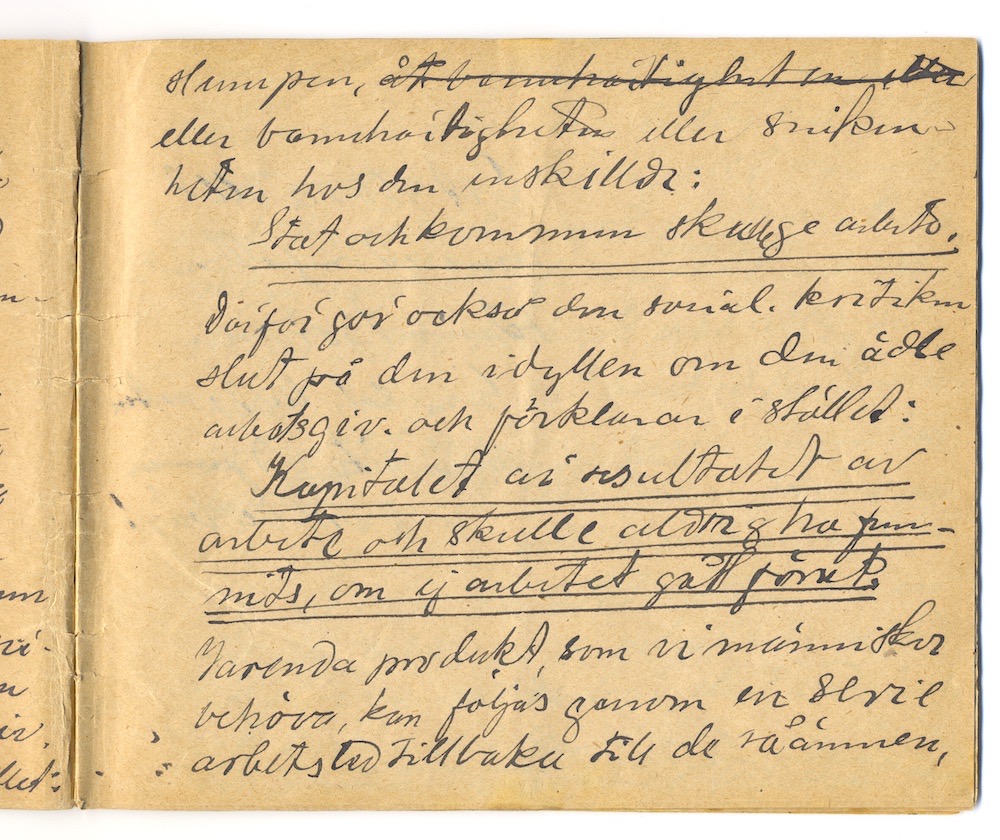 slumpen, åt barmhärtigheten eller
eller barmhärtigheten eller sniken-
heten hos den enskilde:
Stat och kommun skulle ge arbete.
Därför gör också den social. kritiken
slut på den idyllen om den ädle
arbetsgiv. och förklarar i stället:
Kapitalet är resultatet av
arbete och skulle aldrig ha fun-
nits, om ej arbetet gått förut.
Varenda produkt, som vi människor
behöva, kan följas genom en serie
arbetsled tillbaka till de råämnen,